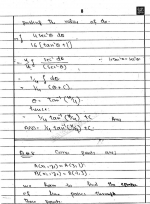 putting the value of dx
∫ 4 sec²θ dθ
16 [tan²θ + 1]
= 4/16 ∫ sec²θ dθ / (sec²θ)
= 1/4 ∫ dθ
= 1/4 (θ + C).
θ = tan⁻¹ (x/4)
= 1/4 tan⁻¹ (x/4) + C. Ans
Ans = 1/4 tan⁻¹ (x/4) + C.
Given points are:
A(x₁, y₁) = A(3, 1)
B(x₂, y₂) =
we have to find the
of line passes through
these points.